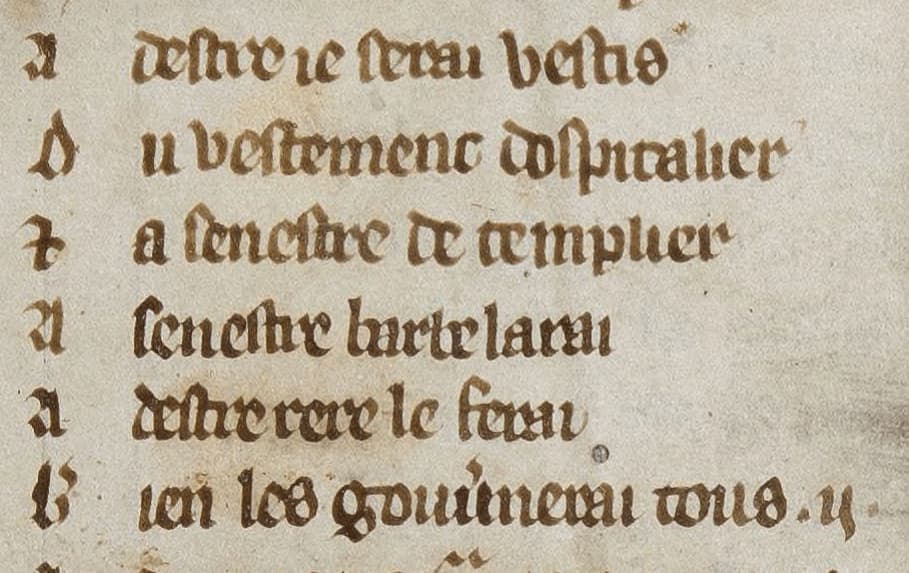 A destre ie serai vestis
D u vestement dospitalier
⁊ a senestre de templier
A senestre barbe larai
A destre rere le ferai
B ien les gouu'nerai tous .ij.